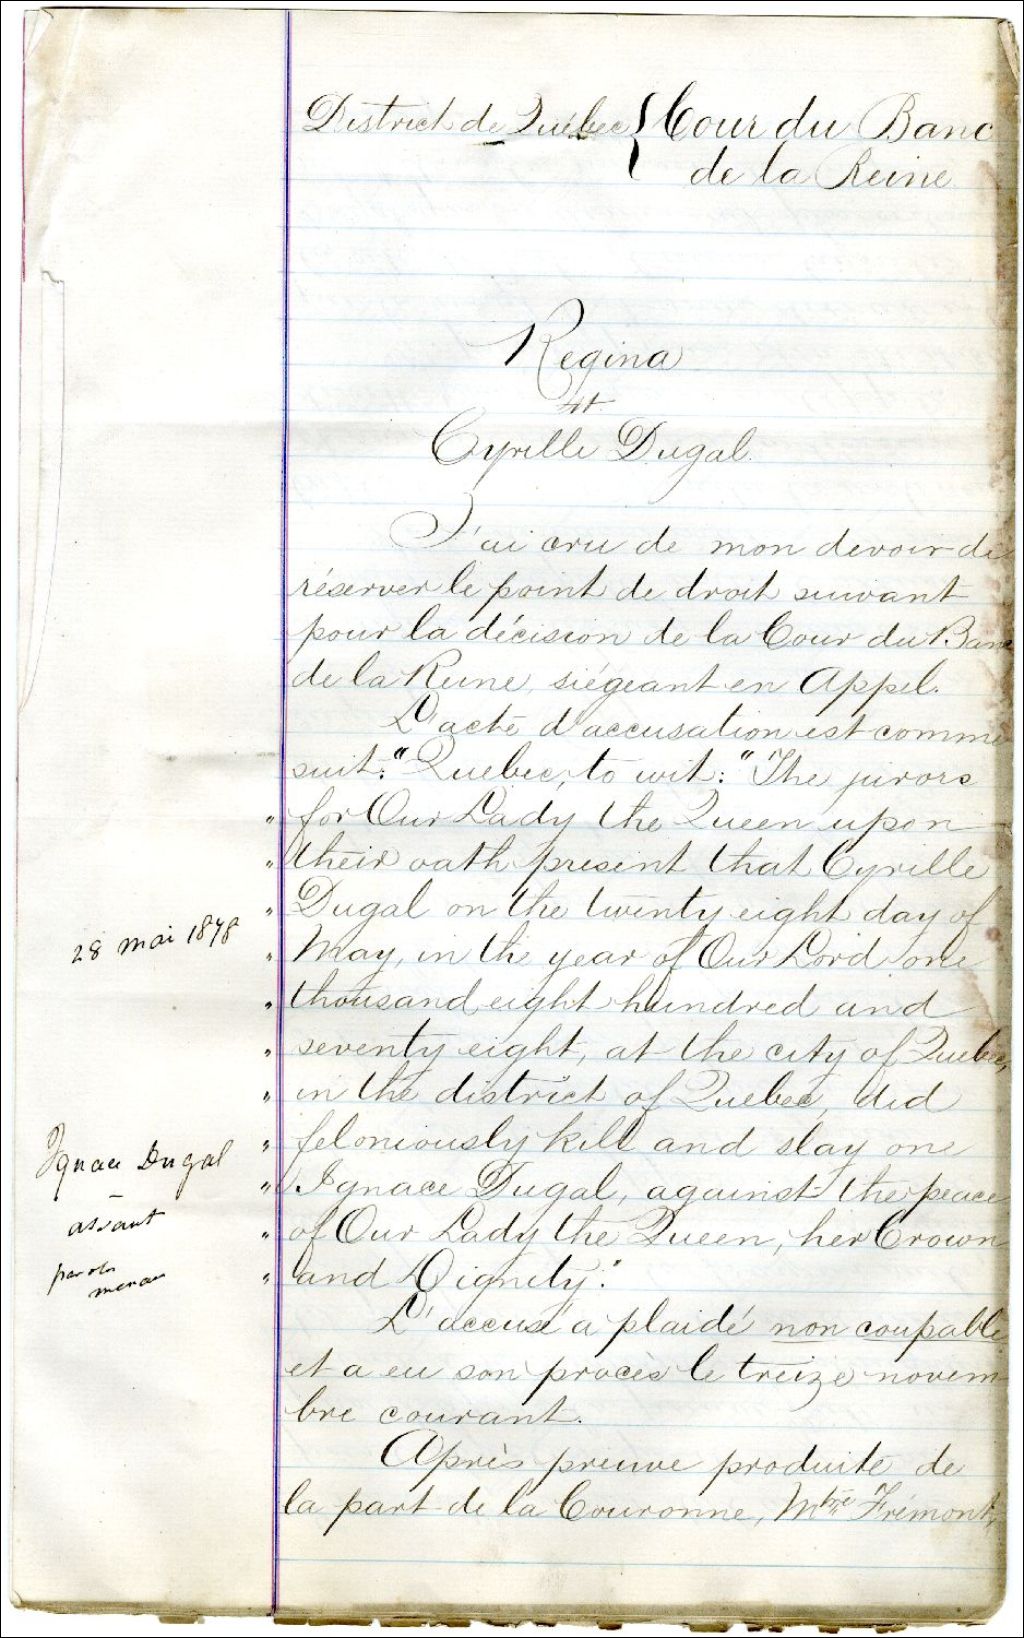 District de Québec { Cour du Banc
de la Reine
Regina
vs
Cyrille Dugal.
J'ai cru de mon devoir de
réserver le point de droit suivant
pour la décision de la Cour du Banc
de la Reine, siégeant en Appel.
L'acte d'accusation est comme
suit: "Quebec, to wit: "The jurors
" for Our Lady the Queen upon
" their oath present that Cyrille
" Dugal on the twenty eight day of
28 mai 1878
" May, in the year of Our Lord one
" thousand eight hundred and
" seventy eight, at the city of Quebec,
" in the district of Quebec, did
" feloniously kill and slay one
Ignace Dugal
" Ignace Dugal, against the peace
assaut
" of Our Lady the Queen, her Crown
paroles
menace
" and Dignity."
L'accusé a plaidé non coupable
et a eu son procès le treize novem-
bre courant.
Après preuve produite de
la part de la Couronne, Mtre Frémont,